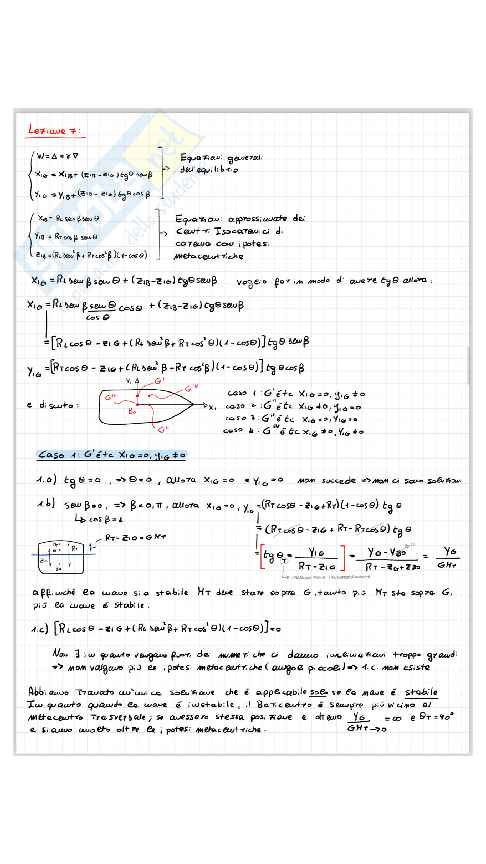 Lezione 7:
W = Δ = γ∇
X1G = X1B + (Z1B - Z1G) tgθ senβ
Y1G = Y1B + (Z1B - Z1G) tgθ cosβ
Equazioni generali
dell'equilibrio
X1B = RL senβ senθ
Y1B = RT cosβ senθ
Z1B = (RL sen²β + RT cos²β)(1 - cosθ)
Equazioni approssimate dei
Centri Isocarenici di
carena con ipotesi
metacentriche
X1G = RL senβ senθ + (Z1B - Z1G) tgθ senβ voglio far in modo di avere tgθ allora:
X1G = RL senβ senθ/cosθ cosθ + (Z1B - Z1G) tgθ senβ
= [RL cosθ - Z1G + (RL sen²β + RT cos²θ)(1 - cosθ)] tgθ senβ
Y1G = [RT cosθ - Z1G + (RL sen²β - RT cos²β)(1 - cosθ)] tgθ cosβ
e discuto:
Y1 G' G'' G''' B0 X1
caso 1: G' è tc X1G = 0, Y1G ≠ 0
caso 2: G'' è tc X1G ≠ 0, Y1G = 0
caso 3: G''' è tc X1G = 0, Y1G = 0
caso 4: G'''' è tc X1G ≠ 0, Y1G ≠ 0
Caso 1: G' è tc X1G = 0, Y1G ≠ 0
1.a) tgθ = 0, => θ = 0, allora X1G = 0 e Y1G = 0 non succede => non ci sono soluzioni
1.b) senβ = 0, => β = 0, π, allora X1G = 0, Y1G = (RT cosθ - Z1G + RT)(1 - cosθ) tgθ
↳ cosβ = 1
= (RT cosθ - Z1G + RT - RT cosθ) tgθ
RT - Z1G = GMT
= [tgθT = Y1G / RT - Z1G] = YG - YB0 / RT - ZG + ZB0 = YG / GMT
affinché la nave sia stabile MT deve stare sopra G, tanto più MT sta sopra G,
più la nave è stabile.
1.c) [RL cosθ - Z1G + (RL sen²β + RT cos²θ)(1 - cosθ)] = 0
Non ∃ in quanto vengono fuori dei numeri che ci danno inclinazioni troppo grandi
=> non valgono più le ipotesi metacentriche (angoli piccoli) => 1.c. non esiste
Abbiamo trovato un'unica soluzione che è applicabile solo se la nave è stabile
In quanto quando la nave è instabile, il Baricentro è sempre più vicino al
metacentro trasversale; se avessero stessa posizione e direi YG / GMT→0 = ∞ e θT = 90°
e siamo molto oltre le ipotesi metacentriche.